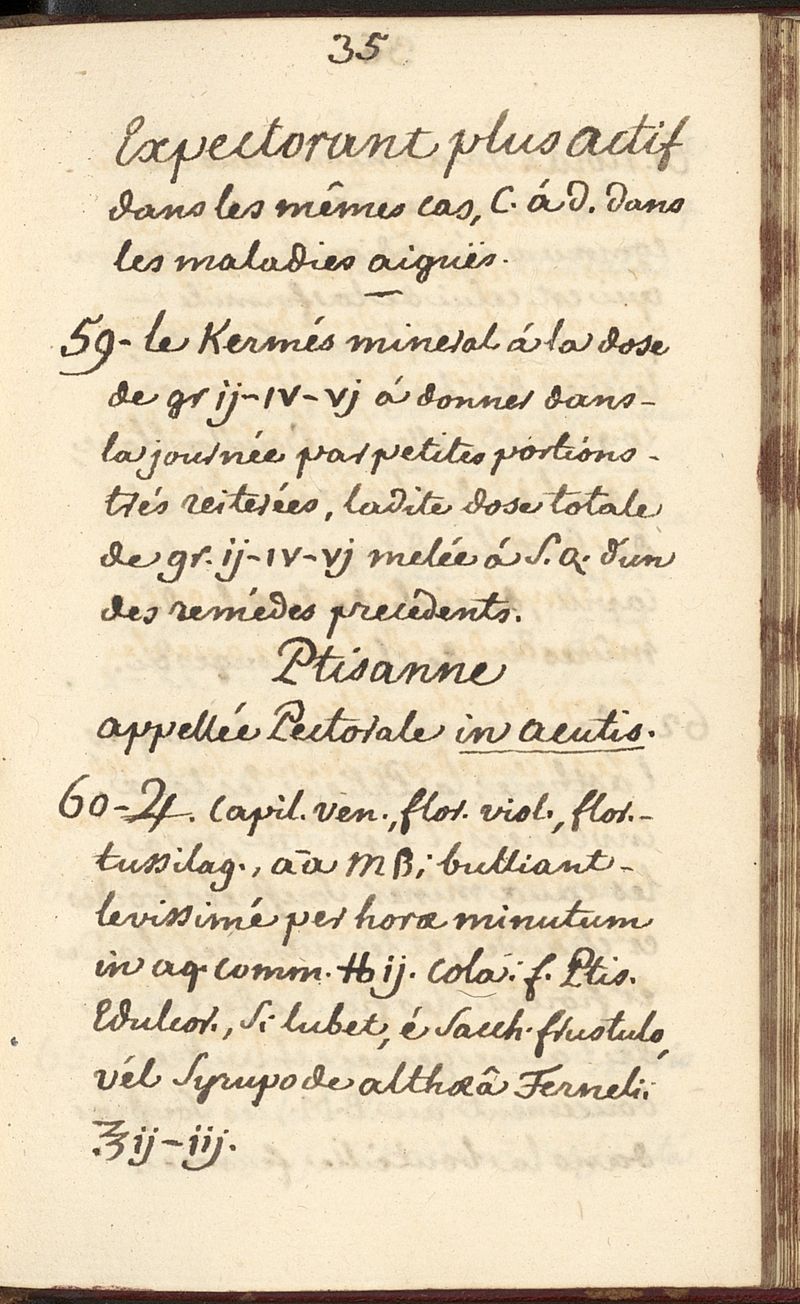 35
Expectorant plus actif
dans les mêmes cas, C. á d. dans
les maladies aiguës.
59- le Kermés mineral á la dose
de gr ij-IV-Vj á donner dans-
la journée par petites portions-
trés reiterées, ladite dose totale
de gr. ij-IV-Vj melée á S. Q. d'un
des remédes precédents.
Ptisanne
appellée Pectorale in acutis.
60-♃. Capil. ven., flor. viol., flor.-
tussilag., āa Mß; bulliant-
levissimé per horæ minutum
in aq. comm. ℔ ij. Cola: f. Ptis.
Edulcor., Si lubet, é Sacch. frustulo,
vél Syrupo de althæâ Fernelii
℥ij-iij.